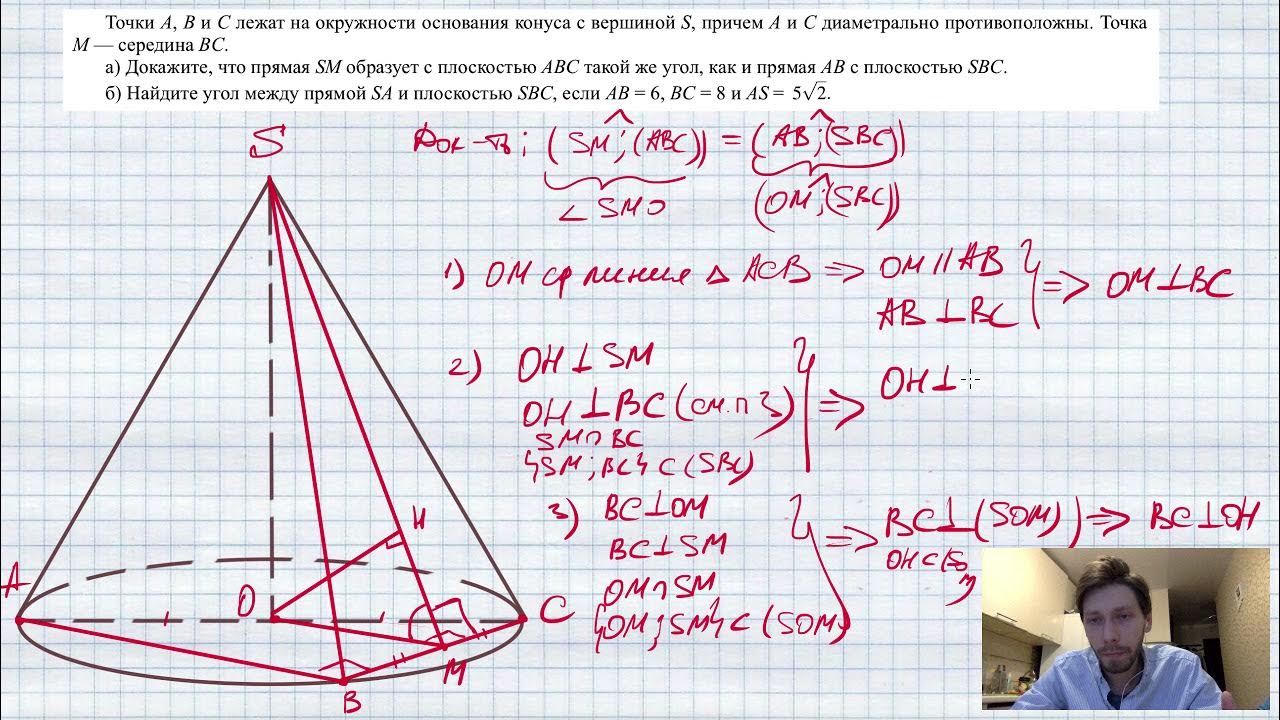 Точки A, B и C лежат на окружности основания конуса с вершиной S, причем A и C диаметрально противоположны. Точка
M — середина BC.
а) Докажите, что прямая SM образует с плоскостью ABC такой же угол, как и прямая AB с плоскостью SBC.
б) Найдите угол между прямой SA и плоскостью SBC, если AB = 6, BC = 8 и AS = 5√2.
Док-ть: (SM; (ABC)) = (AB; (SBC))
∠SMO
(OM; (SBC))
1) OM ср линия △ ACB => OM // AB
AB ⊥ BC
=> OM ⊥ BC
2) OH ⊥ SM
OH ⊥ BC (см. п 3)
SM ∩ BC
{SM; BC} ⊂ (SBC)
=> OH ⊥
3) BC ⊥ OM
BC ⊥ SM
OM ∩ SM
{OM; SM} ⊂ (SOM)
=> BC ⊥ (SOM) => BC ⊥ OH
OH ⊂ (SOM)
S
H
A
O
C
M
B